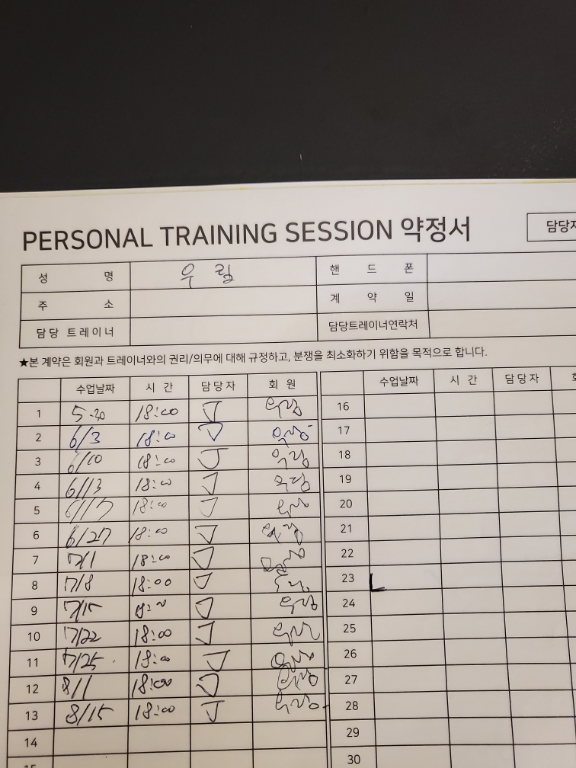 PERSONAL TRAINING SESSION 약정서
담당자
성 명 우림 핸 드 폰
주 소 계 약 일
담당 트레이너 담당트레이너연락처
★본 계약은 회원과 트레이너와의 권리/의무에 대해 규정하고, 분쟁을 최소화하기 위함을 목적으로 합니다.
수업날짜 시 간 담당자 회 원 수업날짜 시 간 담당자
1 5.30 18:00 J 16
2 6/3 18:00 J 17
3 6/10 18:00 J 18
4 6/13 18:00 J 19
5 6/17 18:00 J 20
6 6/27 18:00 J 21
7 7/1 18:00 J 22
8 7/8 18:00 J 23
9 7/15 J 24
10 7/22 18:00 J 25
11 7/25 18:00 J 26
12 8/1 18:00 J 27
13 8/15 18:00 J 28
14 29
15 30